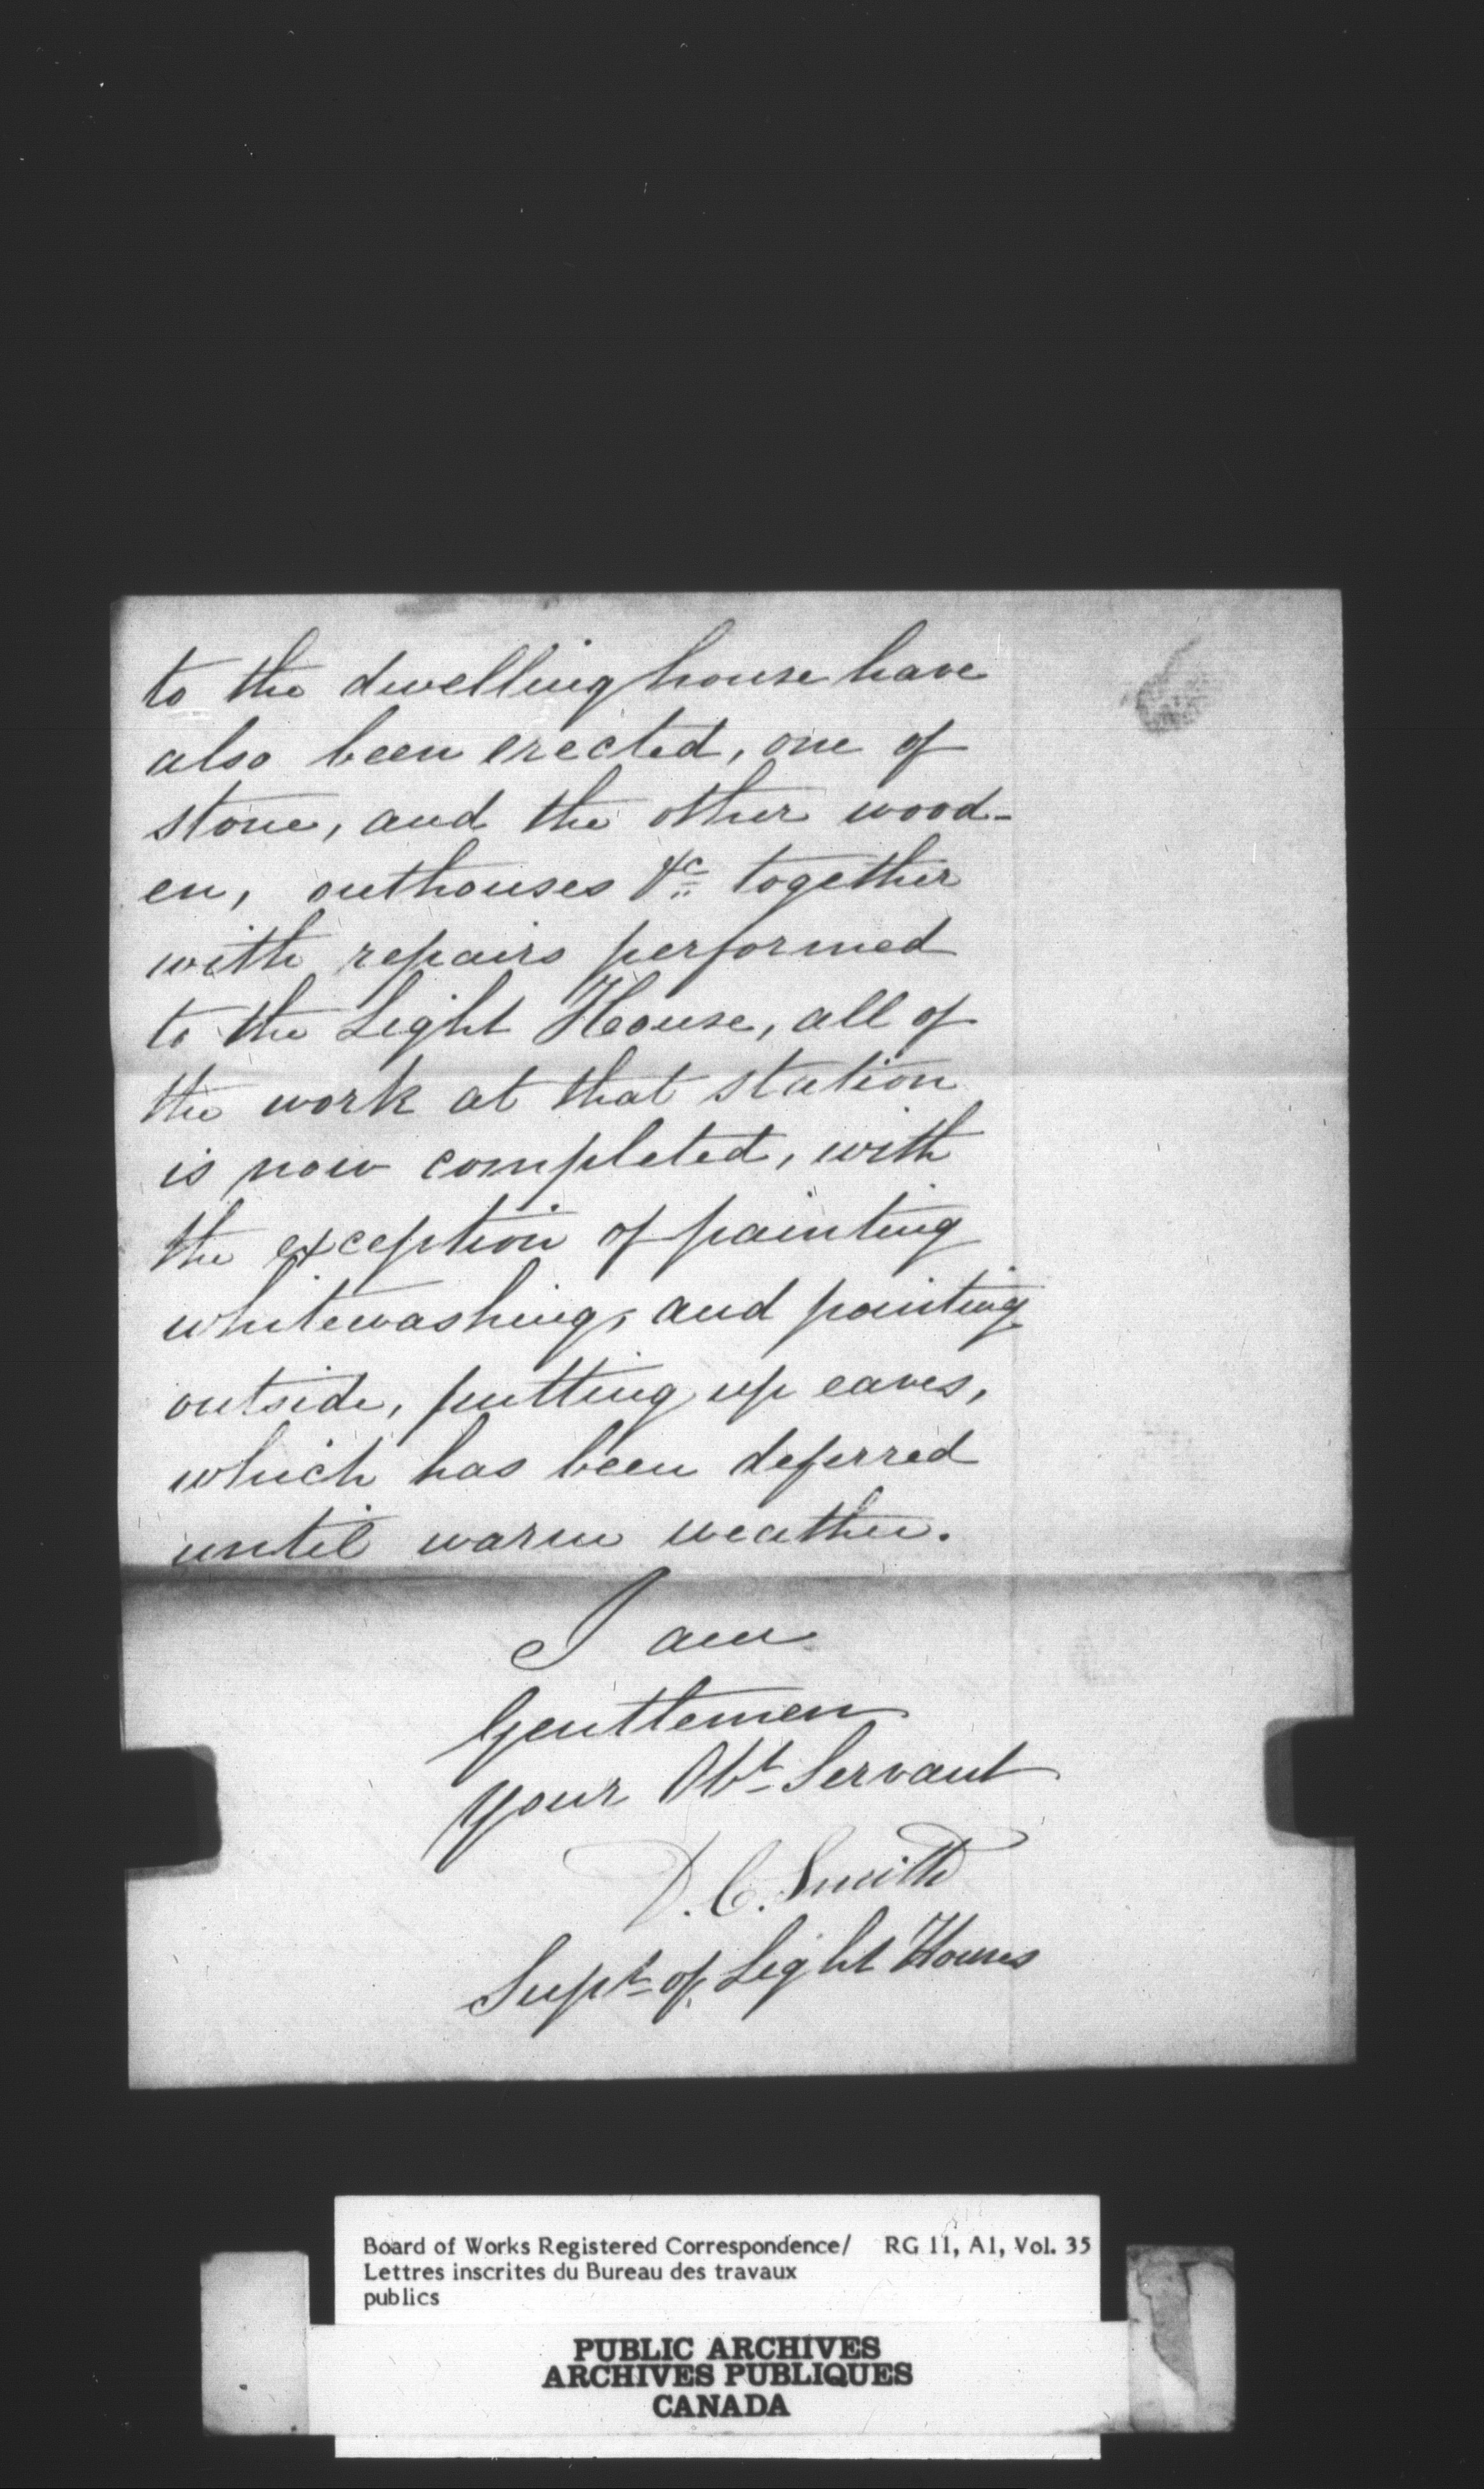 to the dwelling house have
also been erected, one of
stone, and the other wood-
en, outhouses &c together
with repairs performed
to the Light House, all of
the work at that station
is now completed, with
the exception of painting
whitewashing, and pointing
outside, putting up eaves,
which has been deferred
until warm weather.
I am
Gentlemen
Your Obt Servant
D. C. Smith
Supt of Light Houses
Board of Works Registered Correspondence/ RG 11, A1, Vol. 35
Lettres inscrites du Bureau des travaux
publics
PUBLIC ARCHIVES
ARCHIVES PUBLIQUES
CANADA